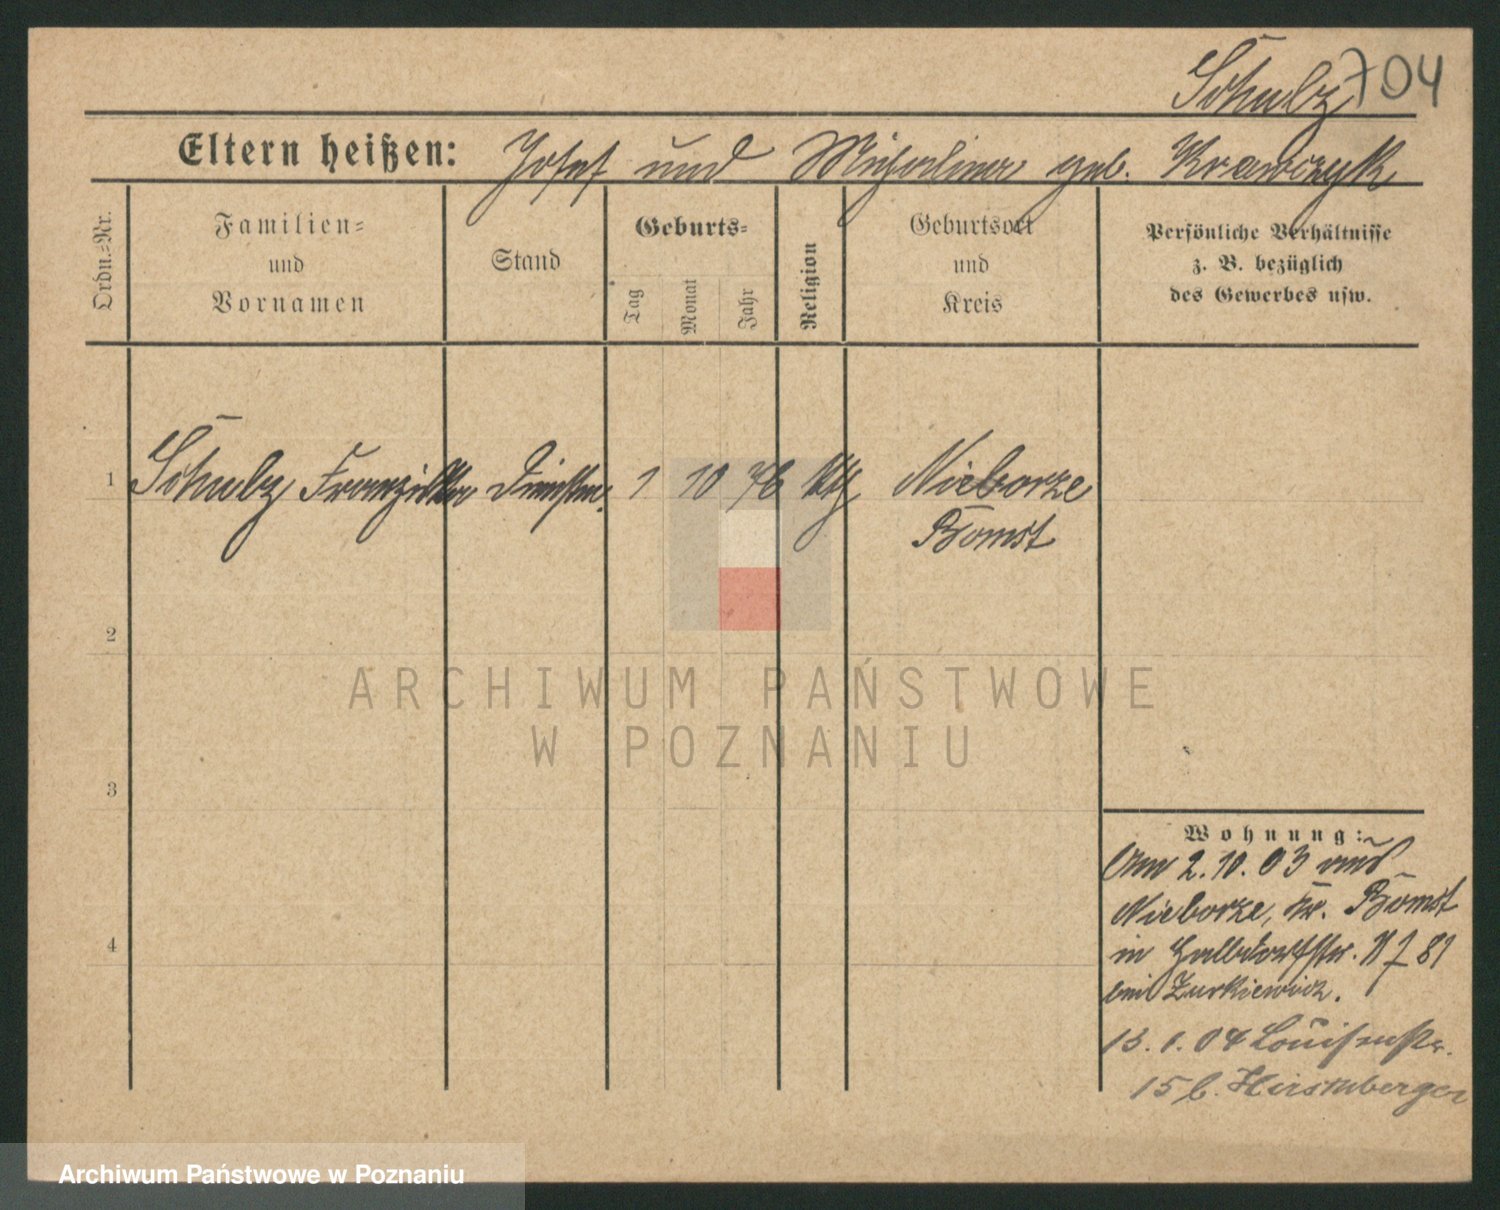 Schulz 704
Eltern heißen: Josef und Michalina geb. Krawczyk
Ordn.-Nr.
Familien-
und
Vornamen
Stand
Geburts-
Tag
Monat
Jahr
Religion
Geburtsort
und
Kreis
Persönliche Verhältnisse
z. B. bezüglich
des Gewerbes usw.
1 Schulz Franziska 1 10 76 kth Nieborze
Bomst
2
3
4
Wohnung:
Am 2.10.03 aus
Nieborze, Kr. Bomst
in Halbdorfstr. 81
bei Zurkiewicz.
13.1.04 Louisenstr.
15 b. Hirschberger
ARCHIWUM PAŃSTWOWE
W POZNANIU
Archiwum Państwowe w Poznaniu